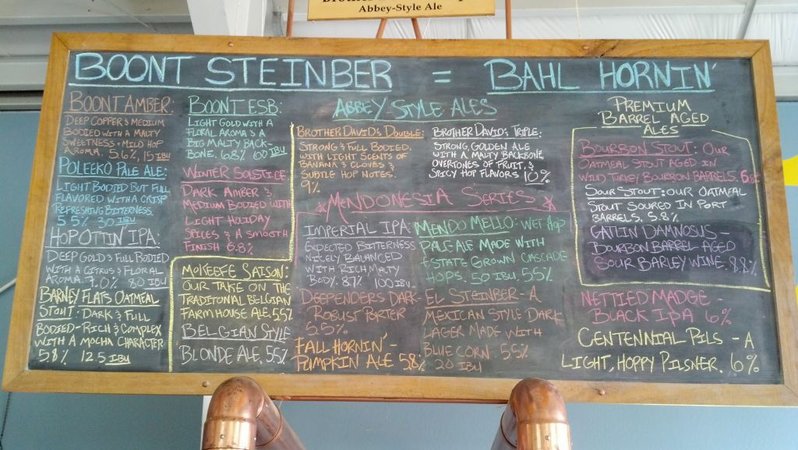 Abbey-Style Ale
BOONT STEINBER = BAHL HORNIN'
BOONT AMBER:
DEEP COPPER & MEDIUM
BODIED WITH A MALTY
SWEETNESS & MILD HOP
AROMA. 5.6% 15 IBU
POLEEKO PALE ALE:
LIGHT BODIED BUT FULL
FLAVORED WITH A CRISP
REFRESHING BITTERNESS.
5.5% 30 IBU
HOP OTTIN IPA:
DEEP GOLD & FULL BODIED
WITH A CITRUS & FLORAL
AROMA. 7.0% 80 IBU
BARNEY FLATS OATMEAL
STOUT: DARK & FULL
BODIED-RICH & COMPLEX
WITH A MOCHA CHARACTER
5.8% 12.5 IBU
BOONT ESB:
LIGHT GOLD WITH A
FLORAL AROMA & A
BIG MALTY BACK-
BONE. 6.8% 100 IBU
WINTER SOLSTICE:
DARK AMBER &
MEDIUM BODIED WITH
LIGHT HOLIDAY
SPICES & A SMOOTH
FINISH 6.8%
MCKEEFE SAISON:
OUR TAKE ON THE
TRADITIONAL BELGIAN
FARMHOUSE ALE. 5.5%
BELGIAN STYLE
BLONDE ALE. 5.5%
ABBEY STYLE ALES
BROTHER DAVID'S DOUBLE:
STRONG & FULL BODIED.
WITH LIGHT SCENTS OF
BANANA & CLOVES &
SUBTLE HOP NOTES.
9%
BROTHER DAVID'S TRIPLE:
STRONG, GOLDEN ALE
WITH A MALTY BACKBONE,
OVERTONES OF FRUIT, &
SPICY HOP FLAVORS 10%
MENDONESIA SERIES
IMPERIAL IPA:
EXPECTED BITTERNESS
NICELY BALANCED
WITH RICH MALTY
BODY. 8.7% 100 IBU
DEEPENDERS DARK-
ROBUST PORTER
5.5%
FALL HORNIN'-
PUMPKIN ALE 5.8%
MENDO MELLO: WET HOP
PALE ALE MADE WITH
ESTATE GROWN CASCADE
HOPS. 50 IBU 5.5%
EL STEINBER-A
MEXICAN STYLE DARK
LAGER MADE WITH
BLUE CORN. 5.5%
20 IBU
PREMIUM
BARREL AGED
ALES
BOURBON STOUT: OUR
OATMEAL STOUT AGED IN
WILD TURKEY BOURBON BARRELS.
SOUR STOUT: OUR OATMEAL
STOUT SOURED IN PORT
BARRELS. 5.8%
CATLIN DAMNOSUS-
BOURBON BARREL AGED
SOUR BARLEY WINE. 8.8%
NETTIED MADGE-
BLACK IPA 6%
CENTENNIAL PILS - A
LIGHT, HOPPY PILSNER. 6%